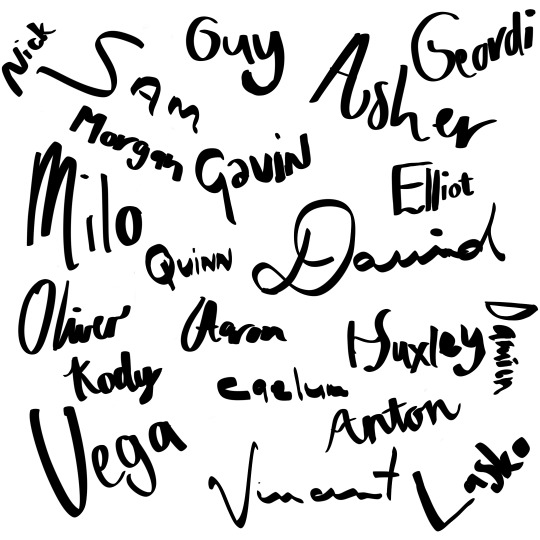 Nick
Sam
Guy
Asher
Geordi
Morgan
Gavin
Milo
Elliot
Quinn
David
Oliver
Aaron
Huxley
Damien
Kody
Caelum
Anton
Vega
Vincent
Lasko